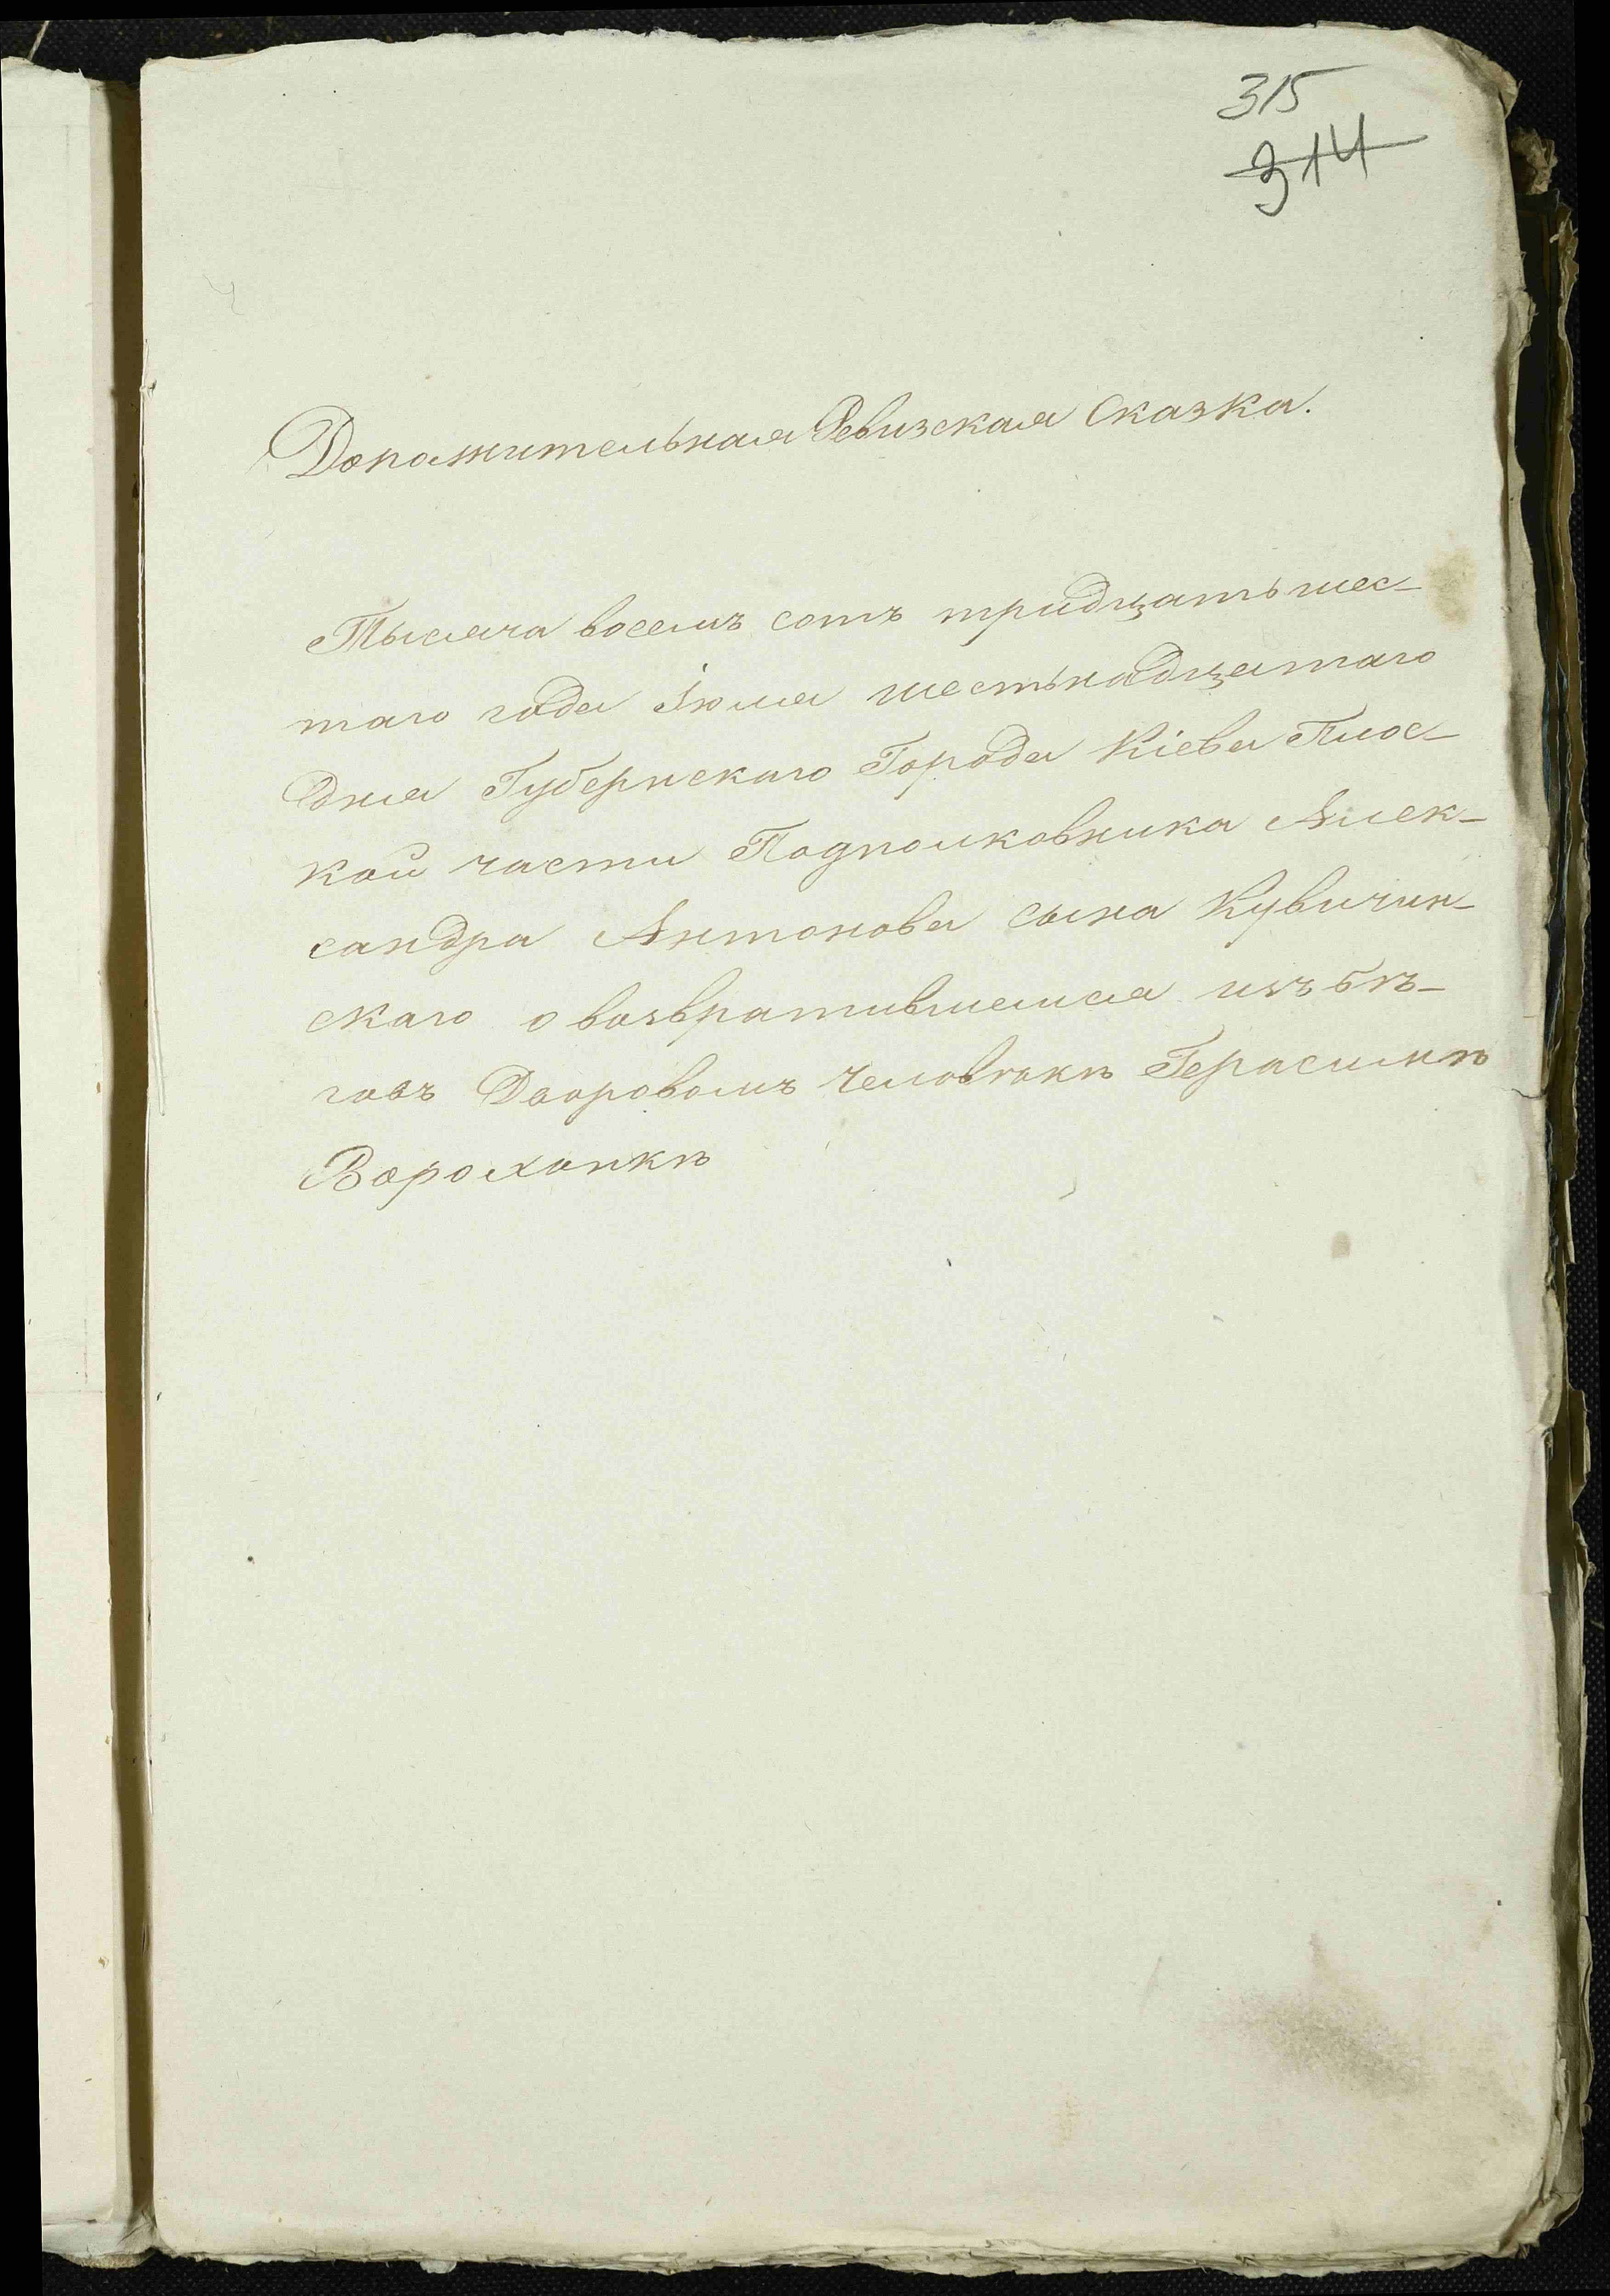 315
314
Дополнительная Ревизская Сказка.
Тысяча восемъ сотъ тридцать шес-
таго года Іюля шестьнадцатаго
дня Губернскаго Города Кіева Плос-
кой части Подполковника Алек-
сандра Антонова сына Кувичин-
скаго о возвратившемся изъ бѣ-
говъ Дворовомъ человѣкѣ Герасимѣ
Ворохонкѣ